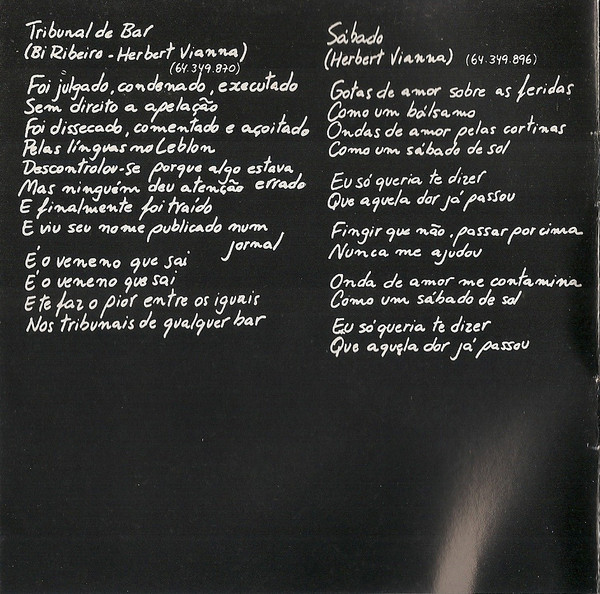 Tribunal de Bar
(Bi Ribeiro - Herbert Vianna)
(64.349.870)
Foi julgado, condenado, executado
Sem direito a apelação
Foi dissecado, comentado e açoitado
Pelas línguas no Leblon
Descontrolou-se porque algo estava
Mas ninguém deu atenção errado
E finalmente foi traído
E viu seu nome publicado num
jornal
É o veneno que sai
É o veneno que sai
E te faz o pior entre os iguais
Nos tribunais de qualquer bar
Sábado
(Herbert Vianna) (64.349.896)
Gotas de amor sobre as feridas
Como um bálsamo
Ondas de amor pelas cortinas
Como um sábado de sol
Eu só queria te dizer
Que aquela dor já passou
Fingir que não, passar por cima
Nunca me ajudou
Onda de amor me contamina
Como um sábado de sol
Eu só queria te dizer
Que aquela dor já passou